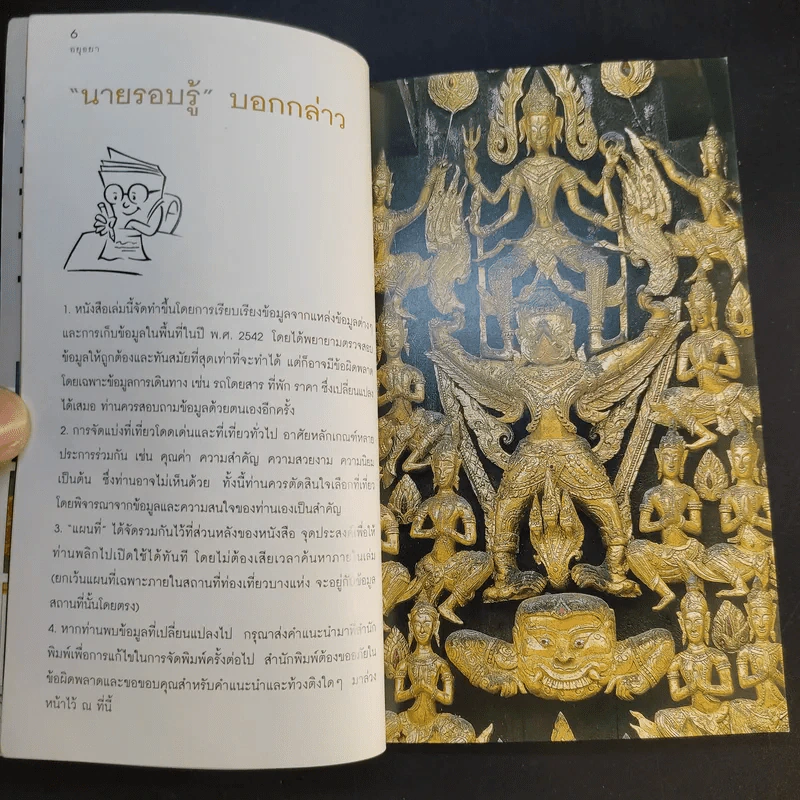 6
อยุธยา
"นายรอบรู้" บอกกล่าว
1. หนังสือเล่มนี้จัดทำขึ้นโดยการเรียบเรียงข้อมูลจากแหล่งข้อมูลต่างๆ
และการเก็บข้อมูลในพื้นที่ในปี พ.ศ. 2542 โดยได้พยายามตรวจสอบ
ข้อมูลให้ถูกต้องและทันสมัยที่สุดเท่าที่จะทำได้ แต่ก็อาจมีข้อผิดพลาด
โดยเฉพาะข้อมูลการเดินทาง เช่น รถโดยสาร ที่พัก ราคา ซึ่งเปลี่ยนแปลง
ได้เสมอ ท่านควรสอบถามข้อมูลด้วยตนเองอีกครั้ง
2. การจัดแบ่งที่เที่ยวโดดเด่นและที่เที่ยวทั่วไป อาศัยหลักเกณฑ์หลาย
ประการร่วมกัน เช่น คุณค่า ความสำคัญ ความสวยงาม ความนิยม
เป็นต้น ซึ่งท่านอาจไม่เห็นด้วย ทั้งนี้ท่านควรตัดสินใจเลือกที่เที่ยว
โดยพิจารณาจากข้อมูลและความสนใจของท่านเองเป็นสำคัญ
3. "แผนที่" ได้จัดรวมกันไว้ที่ส่วนหลังของหนังสือ จุดประสงค์เพื่อให้
ท่านพลิกไปเปิดใช้ได้ทันที โดยไม่ต้องเสียเวลาค้นหาภายในเล่ม
(ยกเว้นแผนที่เฉพาะภายในสถานที่ท่องเที่ยวบางแห่ง จะอยู่กับข้อมูล
สถานที่นั้นโดยตรง)
4. หากท่านพบข้อมูลที่เปลี่ยนแปลงไป กรุณาส่งคำแนะนำมาที่สำนัก
พิมพ์เพื่อการแก้ไขในการจัดพิมพ์ครั้งต่อไป สำนักพิมพ์ต้องขออภัยใน
ข้อผิดพลาดและขอขอบคุณสำหรับคำแนะนำและท้วงติงใดๆ มาล่วง
หน้าไว้ ณ ที่นี้